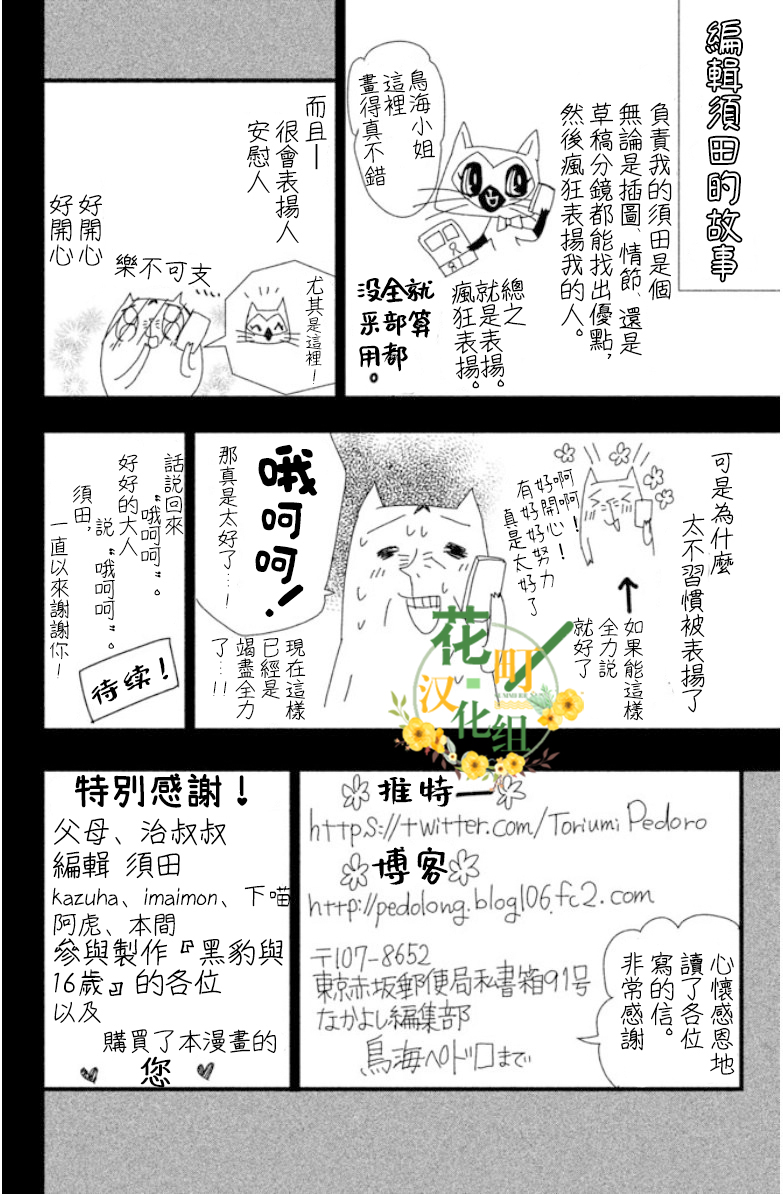 編輯須田的故事
負責我的須田是個
無論是插圖、情節、還是
草稿分鏡都能找出優點，
然後瘋狂表揚我的人。
鳥海小姐
這裡
畫得真不錯
總之
就是表揚。
瘋狂表揚。
就算
全部都
没采用。
而且—
很會表揚人
安慰人
尤其是這裡！
樂不可支
好開心
好開心
可是為什麼
太不習慣被表揚了
啊啊！
好開心！
有好好努力
真是太好了
如果能這樣
全力說
就好了
哦呵呵！
那真是太好了…！
現在這樣
已經是
竭盡全力
了…!!
話說回來
“哦呵呵”。
好好的大人
說“哦呵呵”。
須田，
一直以來謝謝你！
待续！
花町
汉化组
SUMMER
推特
https://twitter.com/ToriumiPedoro
博客
http://pedolong.blog106.fc2.com
〒107-8652
東京赤坂郵便局私書箱91号
なかよし編集部
鳥海ペドロまで
心懷感恩地
讀了各位
寫的信。
非常感謝
特別感謝！
父母、治叔叔
編輯 須田
kazuha、imaimon、下喵
阿虎、本間
參與製作『黑豹與
16歲』的各位
以及
購買了本漫畫的
您